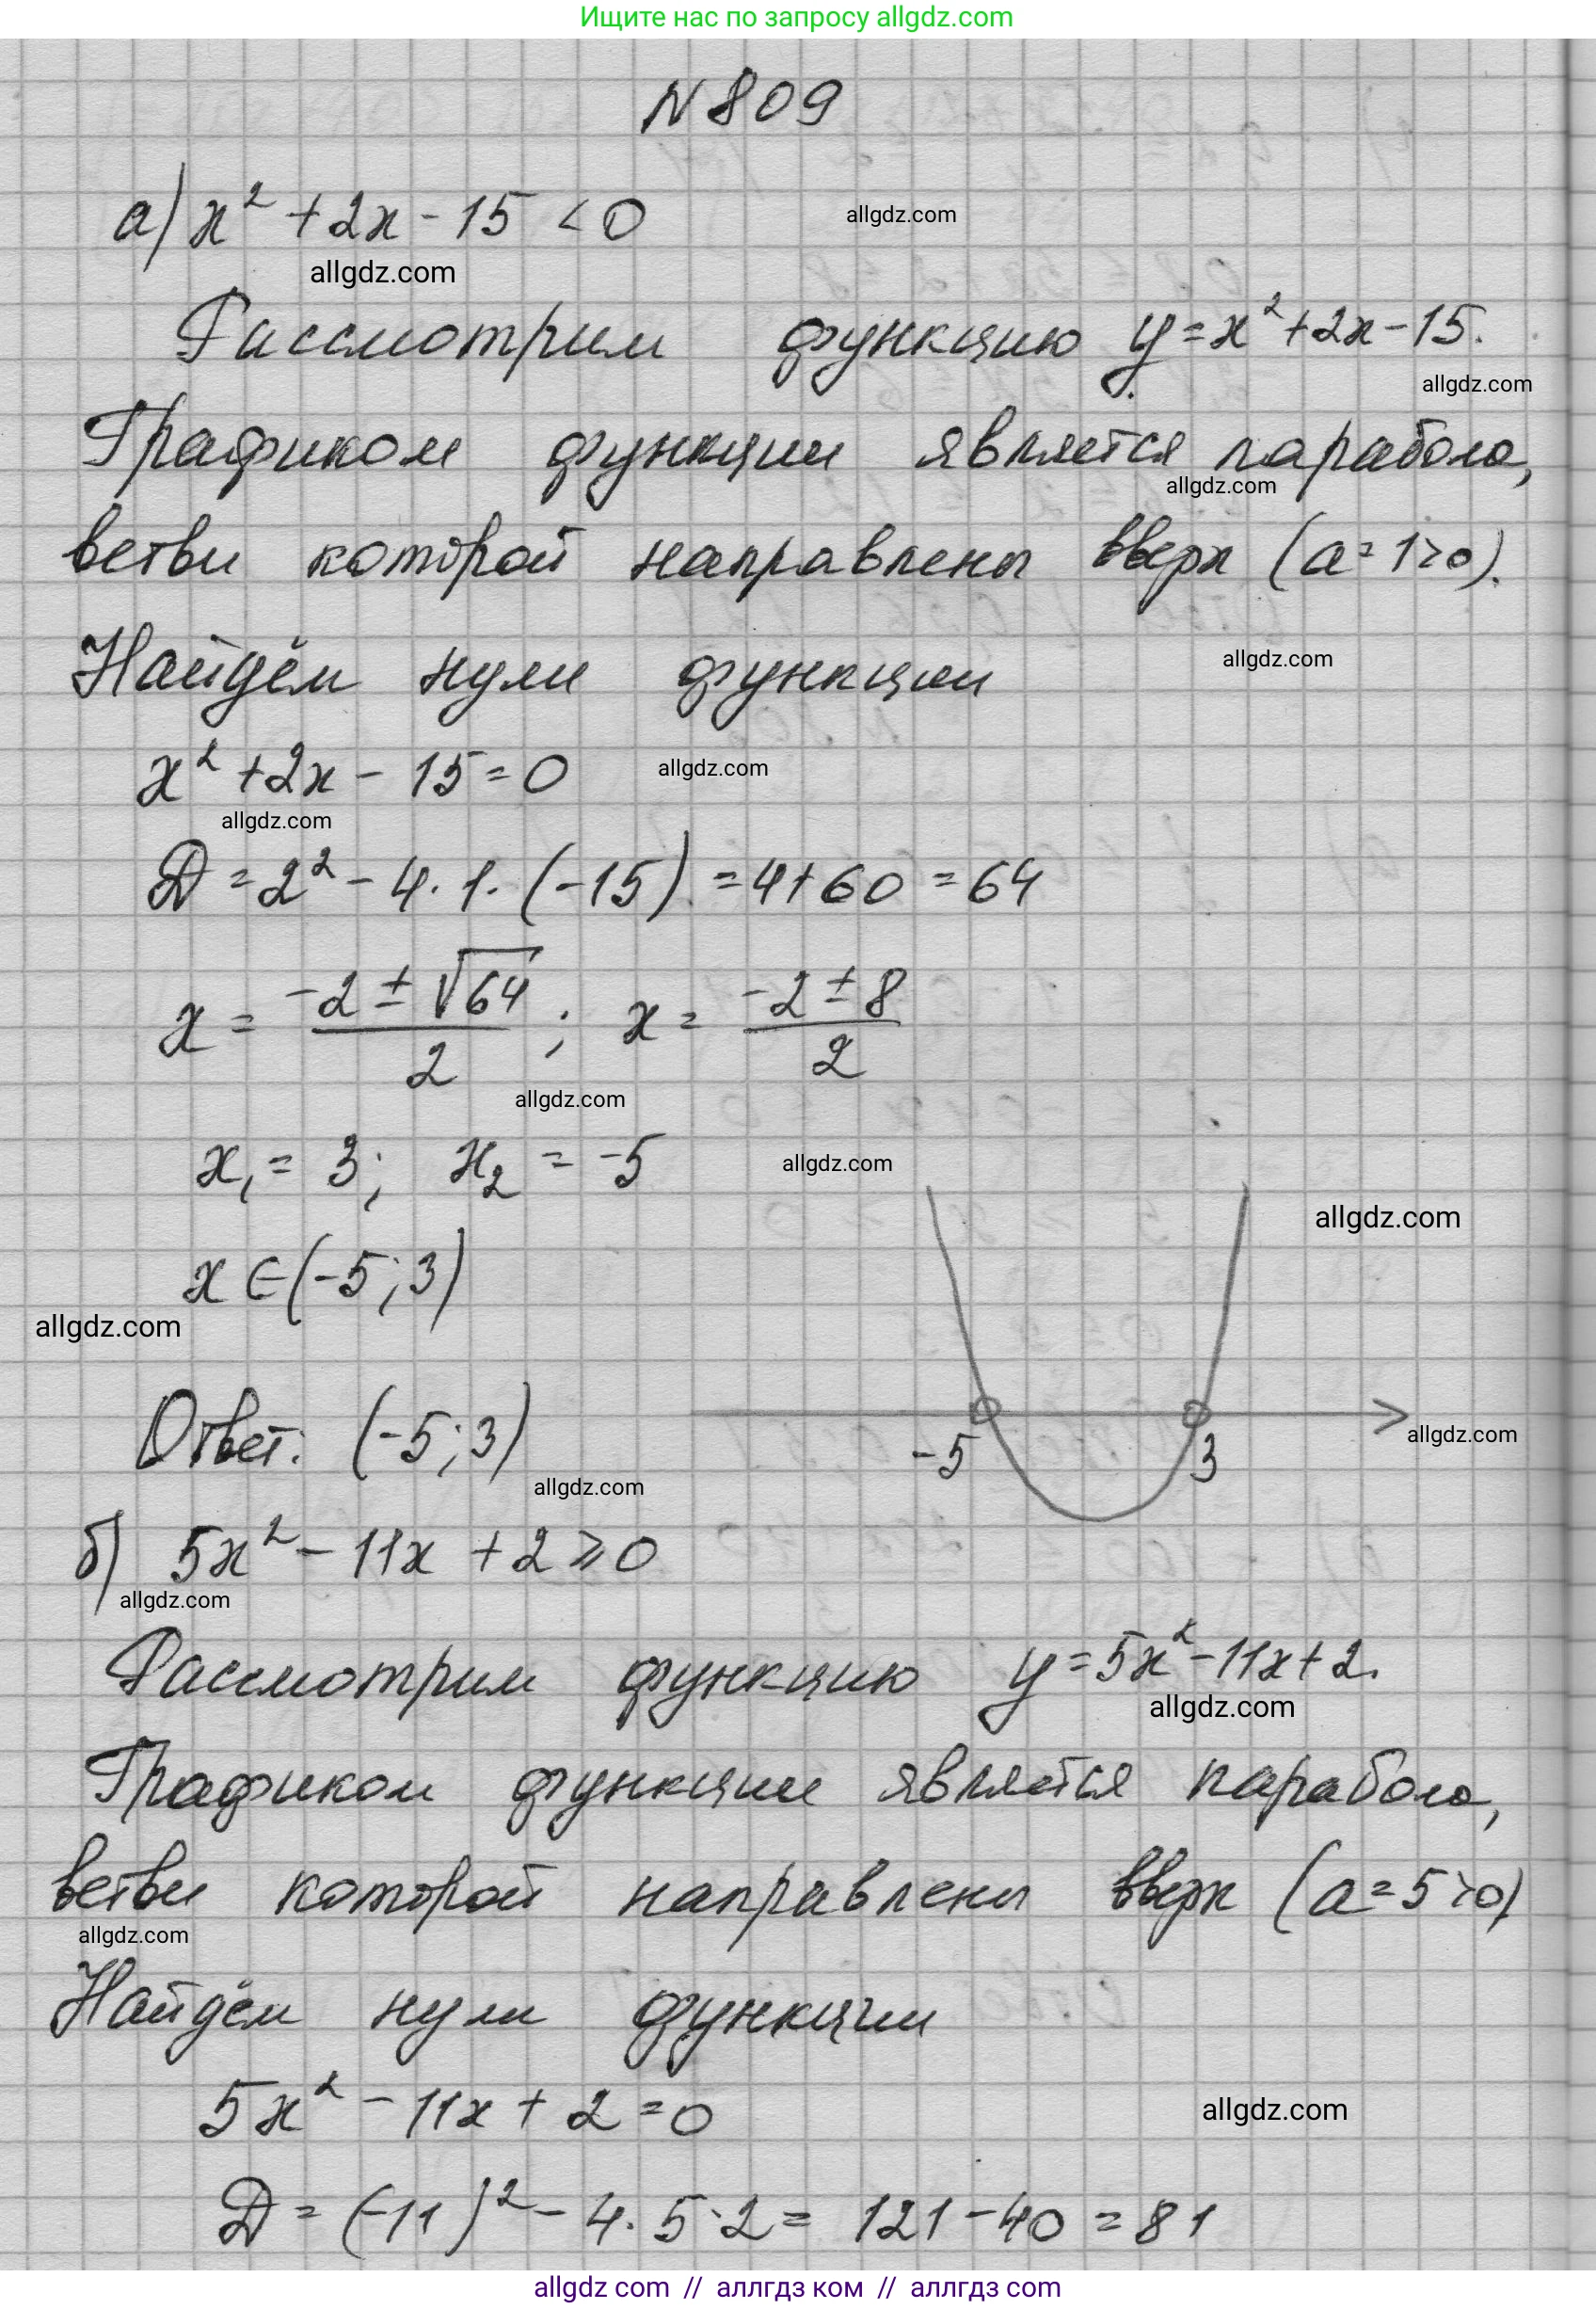 Ищите нас по запросу allgdz.com
N 809
а) x² + 2x - 15 < 0
allgdz.com
allgdz.com
Рассмотрим функцию y = x² + 2x - 15.
allgdz.com
Графиком функции является парабола,
allgdz.com
ветви которой направлены вверх (a = 1 > 0).
Найдём нули функции
allgdz.com
x² + 2x - 15 = 0
allgdz.com
allgdz.com
D = 2² - 4 · 1 · (-15) = 4 + 60 = 64
x = (-2 ± √64)/2 ; x = (-2 ± 8)/2
allgdz.com
x₁ = 3; x₂ = -5
allgdz.com
allgdz.com
x ∈ (-5; 3)
allgdz.com
Ответ: (-5; 3)
allgdz.com
-5 3
allgdz.com
б) 5x² - 11x + 2 ⩾ 0
allgdz.com
Рассмотрим функцию y = 5x² - 11x + 2.
allgdz.com
Графиком функции является парабола,
ветви которой направлены вверх (a = 5 > 0)
allgdz.com
Найдём нули функции
5x² - 11x + 2 = 0
allgdz.com
D = (-11)² - 4 · 5 · 2 = 121 - 40 = 81
allgdz com // аллгдз ком // аллгдз.com